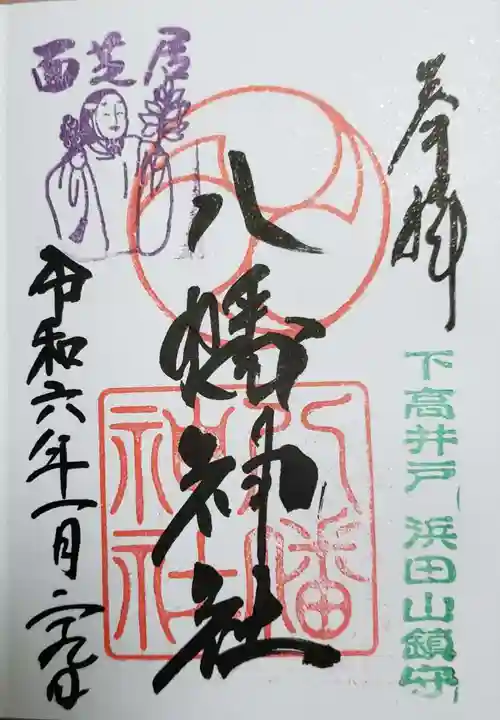 奉拝
下高井戸 浜田山鎮守
八幡神社
八幡
神社
面芝居
令和六年一月